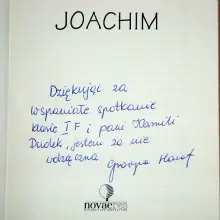 JOACHIM
Dziękując za
wspaniałe spotkanie
klasie I F i pani Kamili
Dudek, jestem za nie
wdzięczna
novae res